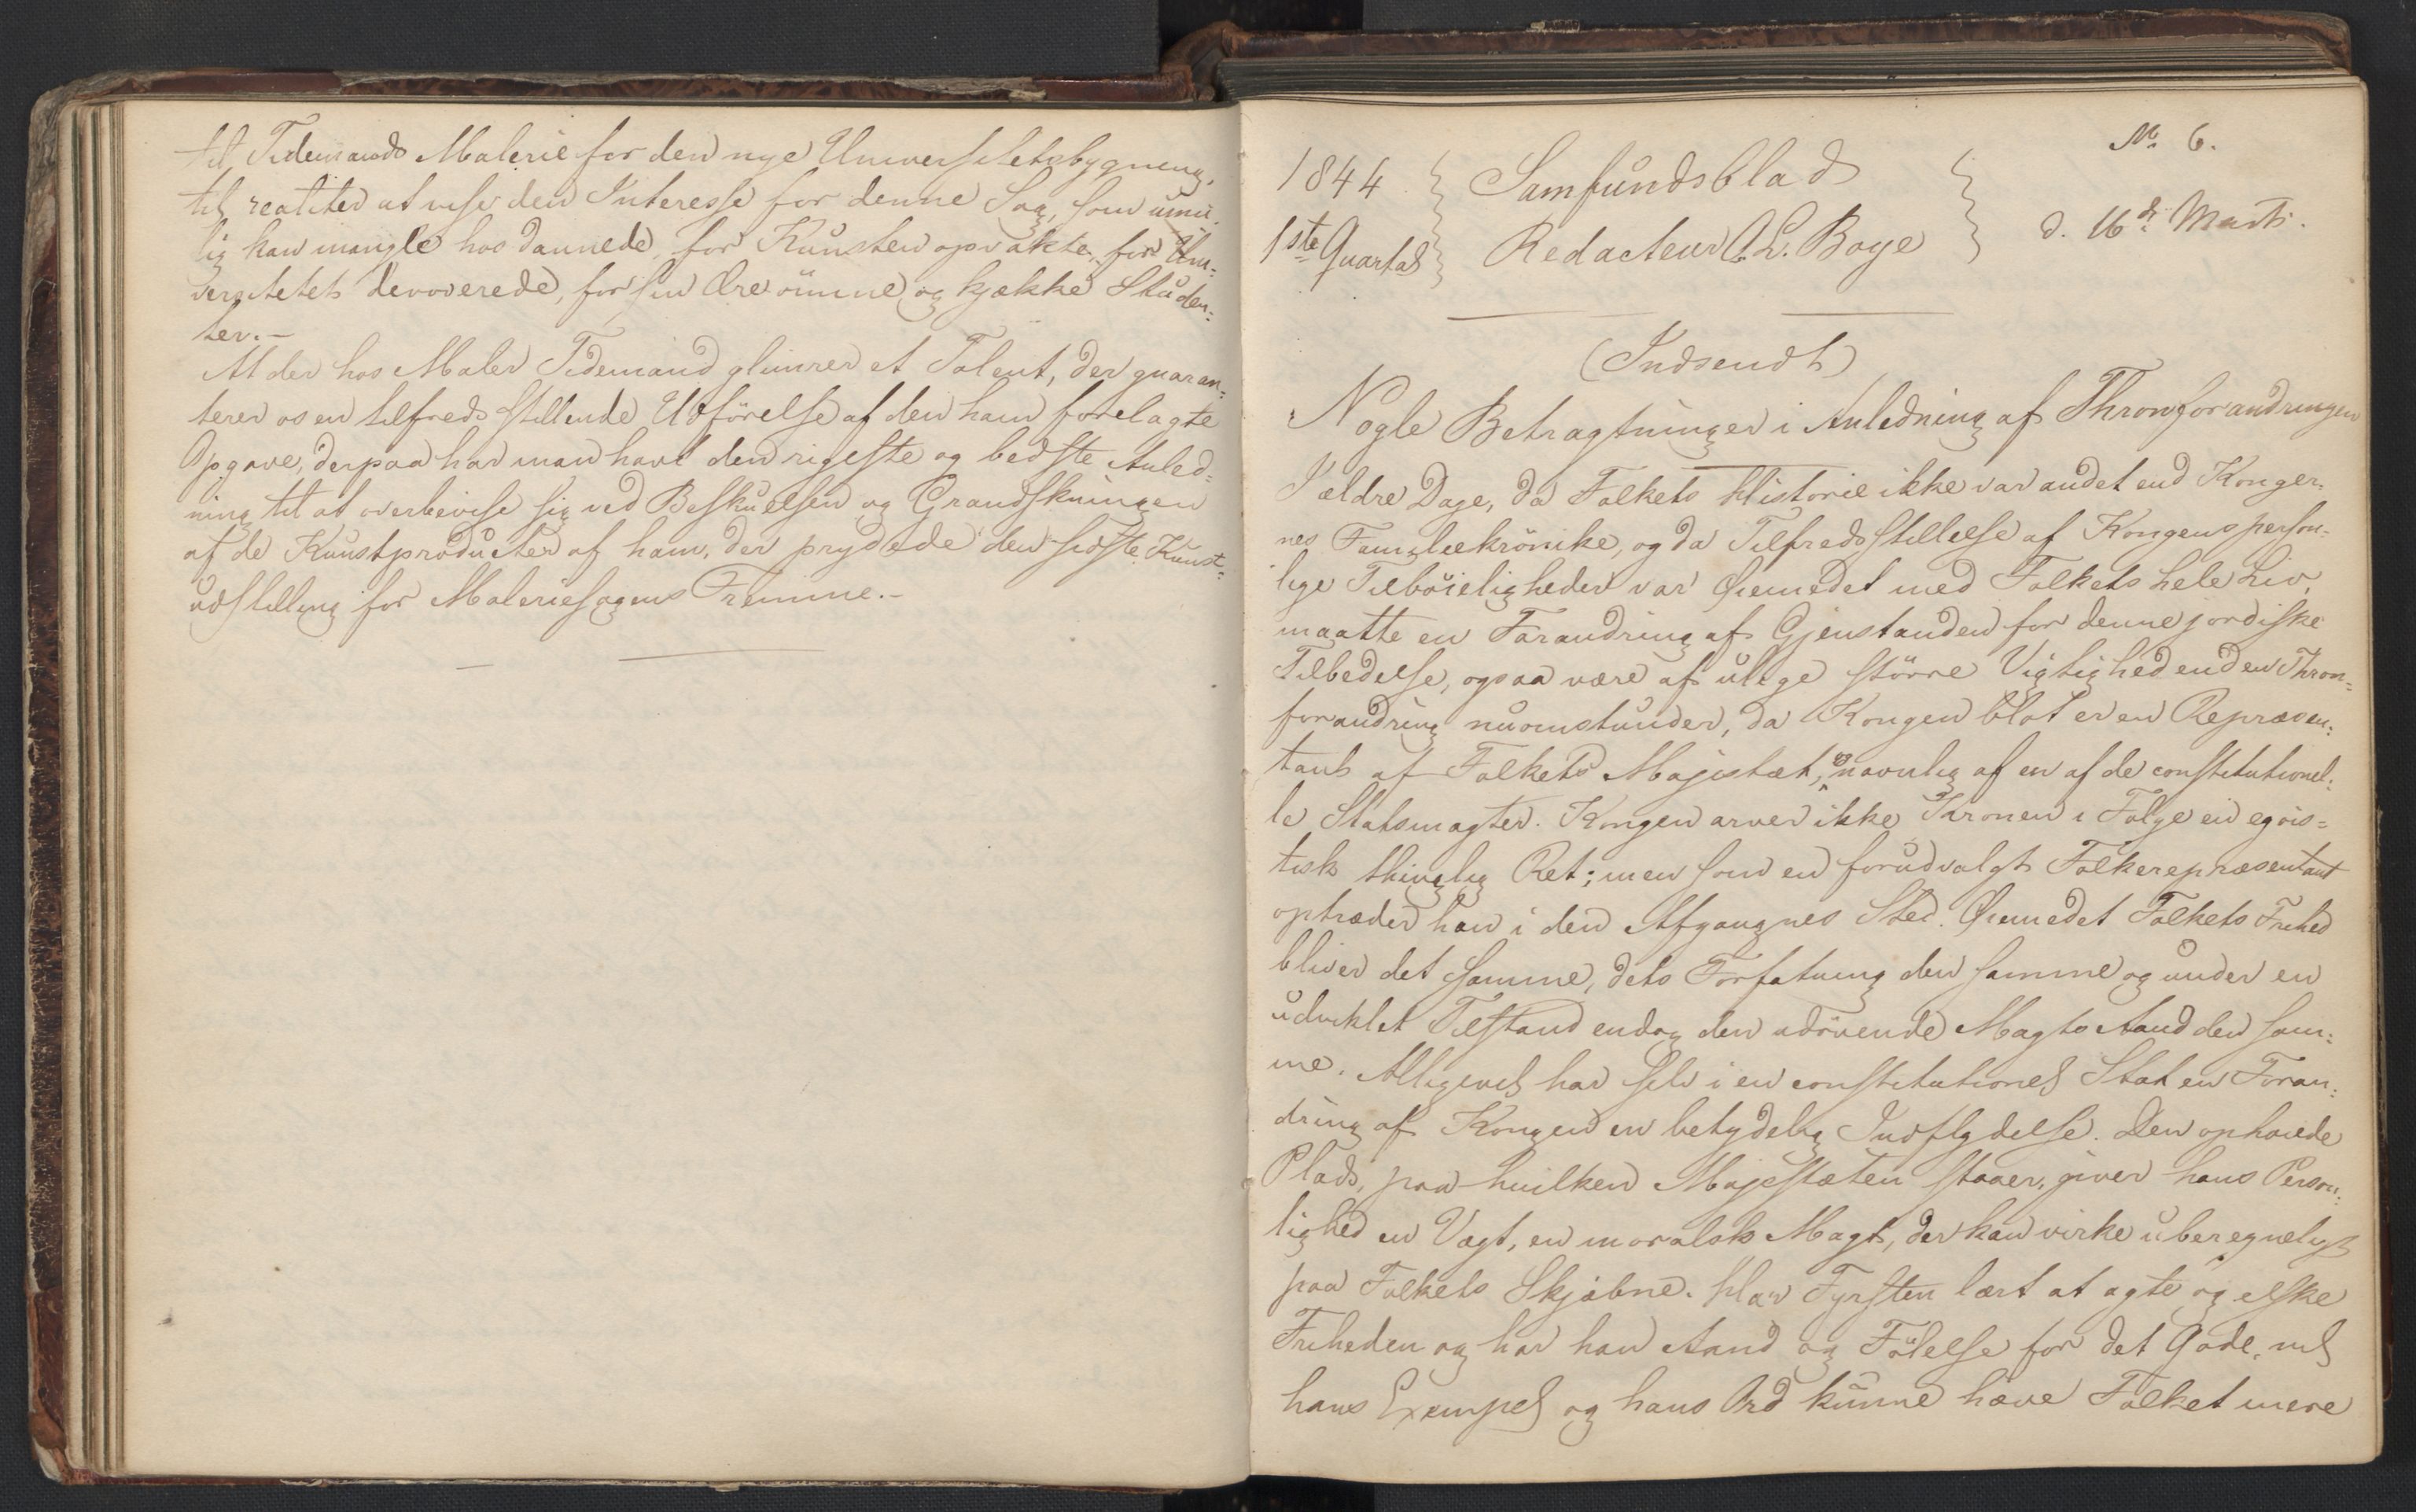 til Tidemands Malerie for den nye Universitetsbygning,
til realiter at vise den Interesse for denne Sag, som umu-
lig kan mangle hos dannede, for Kunsten opvakte, for Uni-
versitetet devoverede, for sin Ære ömme og kjække Studen-
ter.—
At der hos Maler Tidemand glimrer et Talent, der guaran-
terer os en tilfredsstillende Udförelse af den ham forelagte
Opgave, derpaa har man havt den rigeste og bedste Anled-
ning til at overbevise sig ved Beskuelsen og Grandskningen
af de Kunstproducter af ham, der prydede den sidste Kunst-
udstilling for Maleriesagens Fremme.—
No 6.
1844 Samfundsblad
1ste Quartal Redacteur C. L. Boye d. 16de Marts.
(Indsendt)
Nogle Betragtninger i Anledning af Thronforandringen
I ældre Dage, da Folkets Historie ikke var andet end Konger-
nes Familiekrönike, og da Tilfredsstillelse af Kongens person-
lige Tilböieligheder var Øiemedet med Folkets hele Liv,
maatte en Forandring af Gjenstanden for denne jordiske
Tilbedelse, ogsaa være af ulige större Vigtighed end en Thron-
forandring nuomstunder, da Kongen blot er en Repræsen-
tant af Folkets Majestæt, og navnlig af en af de constitutionel-
le Statsmagter. Kongen arver ikke Kronen i Fölge en egois-
tisk thinglig Ret; men som en forudvalgt Folkerepræsentant
optræder han i den Afgangnes Sted. Øiemedet Folkets Frihed
bliver det samme, dets Forfatning den samme og under en
udviklet Tilstand endog den udövende Magts Aand den sam-
me. Alligevel har selv i en constitutionel Stat en Foran-
dring af Kongen en betydelig Indflydelse. Den ophöiede
Plads, paa hvilken Majestæten staaer, giver hans Person-
lighed en Vægt, en moralsk Magt, der kan virke uberegneligt
paa Folkets Skjæbne. Har Fyrsten lært at agte og elske
Friheden og har han Aand og Fölelse for det Gode, vil
hans Exempel og hans Ord kunne hæve Folket mere